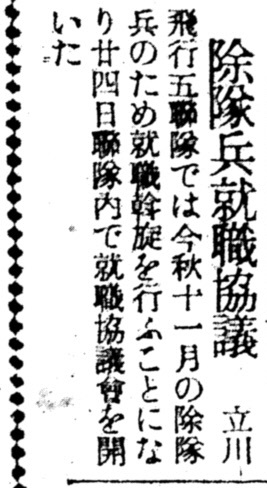 除隊兵就職協議 立川
飛行五聯隊では今秋十一月の除隊
兵のため就職斡旋を行ふことにな
り廿四日聯隊内で就職協議會を開
いた